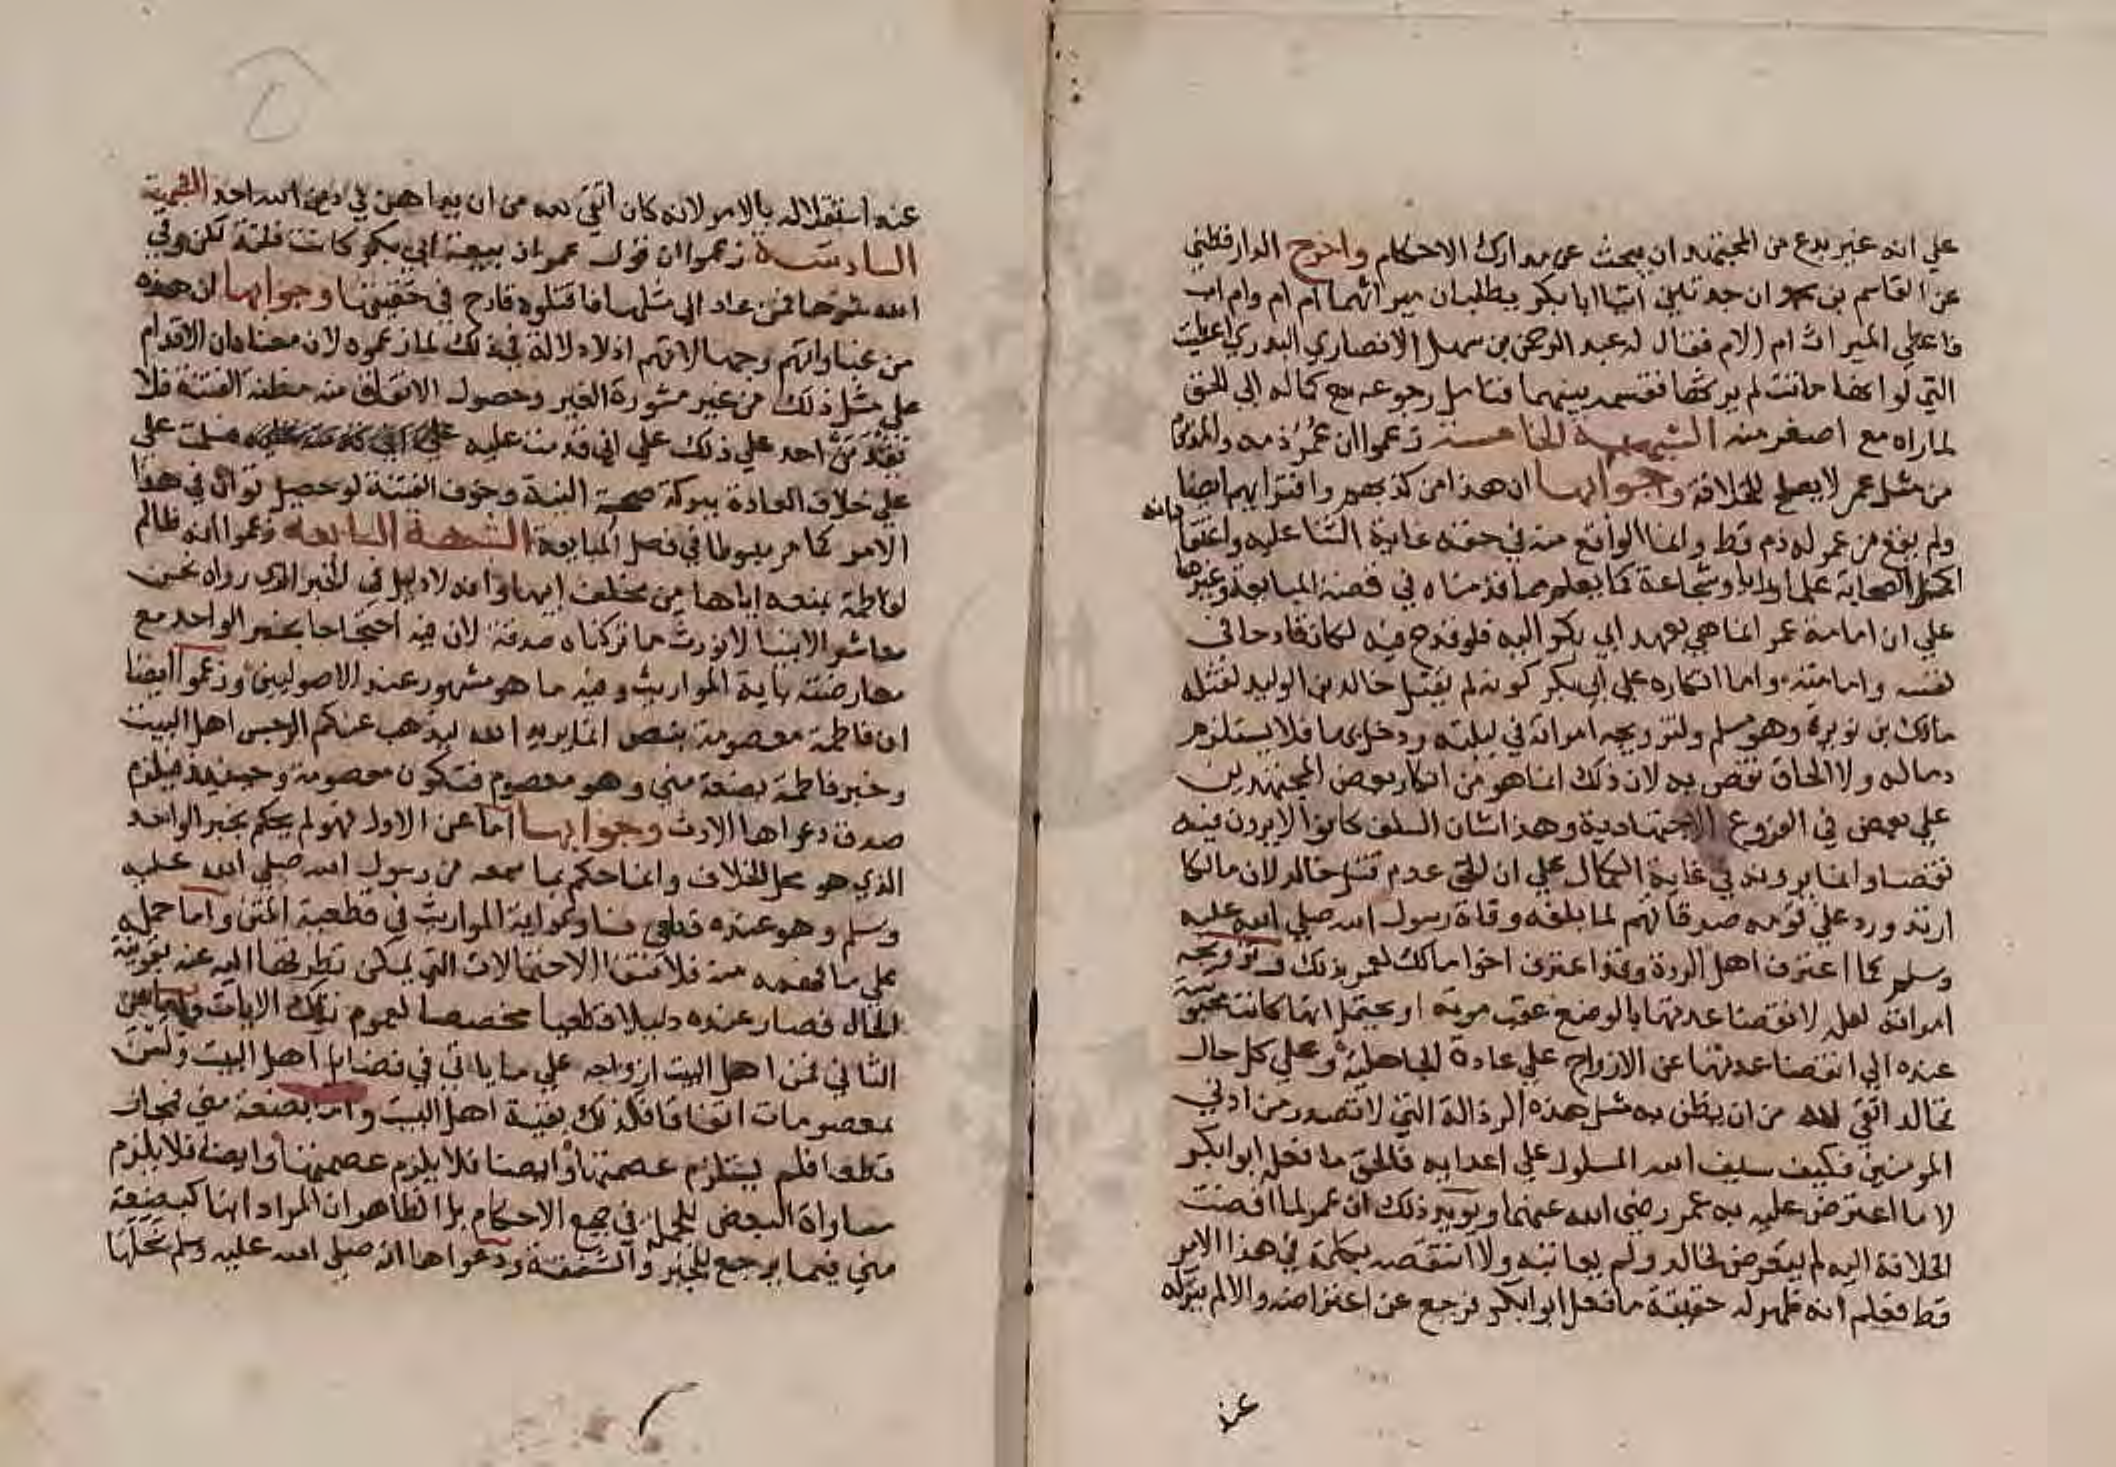 علي انه غير بدع من المجتهد ان يبحث عن مدارك الاحكام واخرج الدارقطني
عن القاسم بن محمد ان جدتين اتتا ابا بكر يطلبان ميراثهما ام ام وام اب
فاعطي الميراث ام الام فقال له عبد الرحمن بن سهل الانصاري البدري اعطيت
التي لو انها ماتت لم يرثها فقسمه بينهما فتامل رجوعه مع كماله الي الحق
لما راه مع اصغر منه الشبهة الخامسة زعموا ان عمر ذمه والمذموم
من مثل عمر لا يصلح للخلافة وجوابها ان هذا من كذبهم وافترائهم ايضا
ولم يقع من عمر له ذم قط وانما الواقع منه في حقه غاية الثنا عليه واعتقا
دانه
اكمل الصحابة علما ورايا وشجاعة كما يعلم مما قدمناه في قصة المبايعة وغيرها
علي ان امامة عمر انما هي بعهد ابي بكر اليه فلو قدح فيه لكان قادحا في
نفسه وامامته واما انكاره علي ابي بكر كونه لم يقتل خالد بن الوليد لقتله
مالك بن نويرة وهو مسلم ولتزويجه امراته في ليلته ودخل بها فلا يستلزم
ذما له ولا الحاق نقص به لان ذلك انما هو من انكار بعض المجتهدين
علي بعض في الفروع الاجتهادية وهذا شان السلف كانوا لا يرون فيه
نقصا وانما يرونه في غاية الكمال علي ان الحق عدم قتل خالد لان مالكا
ارتد ورد علي قومه صدقاتهم لما بلغه وفاة رسول الله صلي الله عليه
وسلم كما اعترف اهل الردة وقد اعترف اخوا مالك لعمر بذلك وتزويجه
امراته لعله لانقضا عدتها بالوضع عقب موته او يحتمل انها كانت محبوسة
عنده الي انقضا عدتها عن الازواج علي عادة الجاهلية وعلي كل حال
فخالد اتقي لله من ان يظن به مثل هذه الرذالة التي لا تصدر من ادني
المومنين فكيف بسيف الله المسلول علي اعدايه فالحق ما فعله ابو بكر
لا ما اعترض عليه به عمر رضي الله عنهما ويويد ذلك ان عمر لما افضت
الخلافة اليه لم يتعرض لخالد ولم يعاتبه ولا انتقصه بكلمة في هذا الامر
قط فعلم انه ظهر له حقيقة ما فعل ابو بكر فرجع عن اعتراضه والا لم يتركه
عند
عند استقلاله بالامر لانه كان اتقي لله من ان يداهن في دين الله احد الشبهة
السادسة زعموا ان قول عمر ان بيعة ابي بكر كانت فلتة لكن وقي
الله شرها فمن عاد الي مثلها فاقتلوه قادح في حقيتها وجوابها ان هذه
من غباواتهم وجهالاتهم اذ لا دلالة في ذلك لما زعموه لان معناه ان الاقدام
علي مثل ذلك من غير مشورة الغير وحصول الاتفاق منه مظنة الفتنة فلا
يقدمن احد علي ذلك علي اني قدمت عليه فسلمت علي
علي خلاف العادة ببركة صحة النية وخوف الفتنة لو حصل توان في هذا
الامر كما مر مبسوطا في فصل المبايعة الشبهة السابعة زعموا انه ظالم
لفاطمة بمنعه اياها من مخلف ابيها وانه لا دليل في الخبر الذي رواه نحن
معاشر الانبيا لا نورث ما تركناه صدقة لان فيه احتجاجا بخبر الواحد مع
معارضته باية المواريث وفيه ما هو مشهور عند الاصوليين وزعموا ايضا
ان فاطمة معصومة بنص انما يريد الله ليذهب عنكم الرجس اهل البيت
وخبر فاطمة بضعة مني وهو معصوم فتكون معصومة وحينيذ فيلزم
صدق دعواها الارث وجوابها اما عن الاول فهو لم يحكم بخبر الواحد
الذي هو محل الخلاف وانما حكم بما سمعه من رسول الله صلي الله عليه
وسلم وهو عنده قطعي فساوي اية المواريث في قطعية المتن واما حمله
علي ما فهمه منه فلانتفا الاحتمالات التي يمكن تطرقها اليه عنه بقرينة
الحال فصار عنده دليلا قطعيا مخصصا لعموم تلك الايات واما عن
الثاني فمن اهل البيت ازواجه علي ما ياتي في فضايل اهل البيت ولسن
بمعصومات اتفاقا فكذلك بقية اهل البيت واما بضعة مني فمجاز
قطعا فلم يستلزم عصمتها وايضا فلا يلزم عصمتها وايضا فلا يلزم
مساواة البعض للجملة في جميع الاحكام بل الظاهر ان المراد انها كبضعة
مني فيما يرجع للخير والشفقة ودعواها انه صلي الله عليه وسلم نحلها